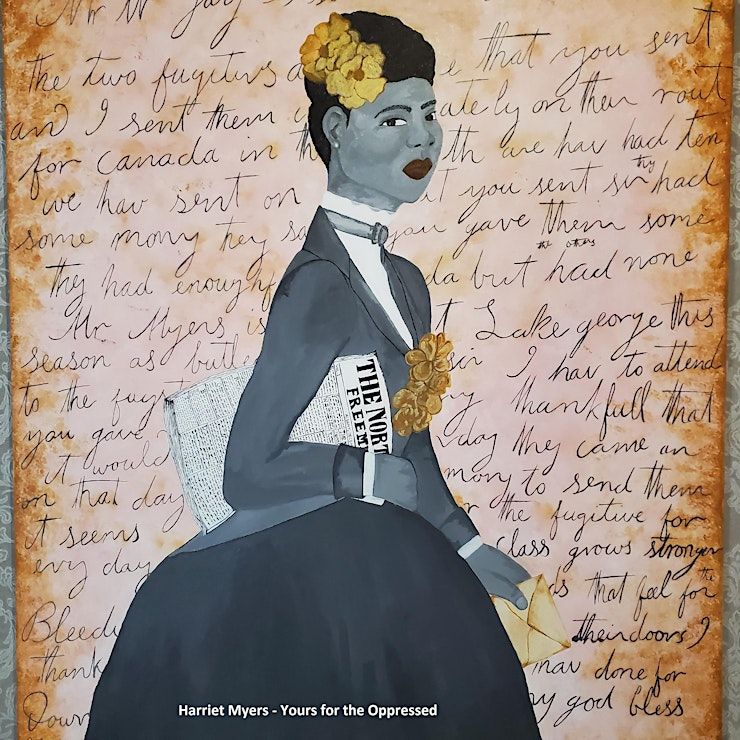 Mr W Jay
the two fugitivs a e that you sent
and I sent them i ately on then rout
for Canada in th th we hav had ten
thy
we hav sent on t you sent sin had
some mony they sa you gave them some
the others
they had enough f da but had none
Mr Myers is t Lake george this
season as butle sir I hav to attend
to the fugit ry thankfull that
you gave day they came an
it would mony to send them
on that day r the fugitive for
it seems class grows stronger
evry day ds that feel for the
Bleedi their doors I
thank hav done for
Down my god bless
THE NORT
FREEM
Harriet Myers - Yours for the Oppressed